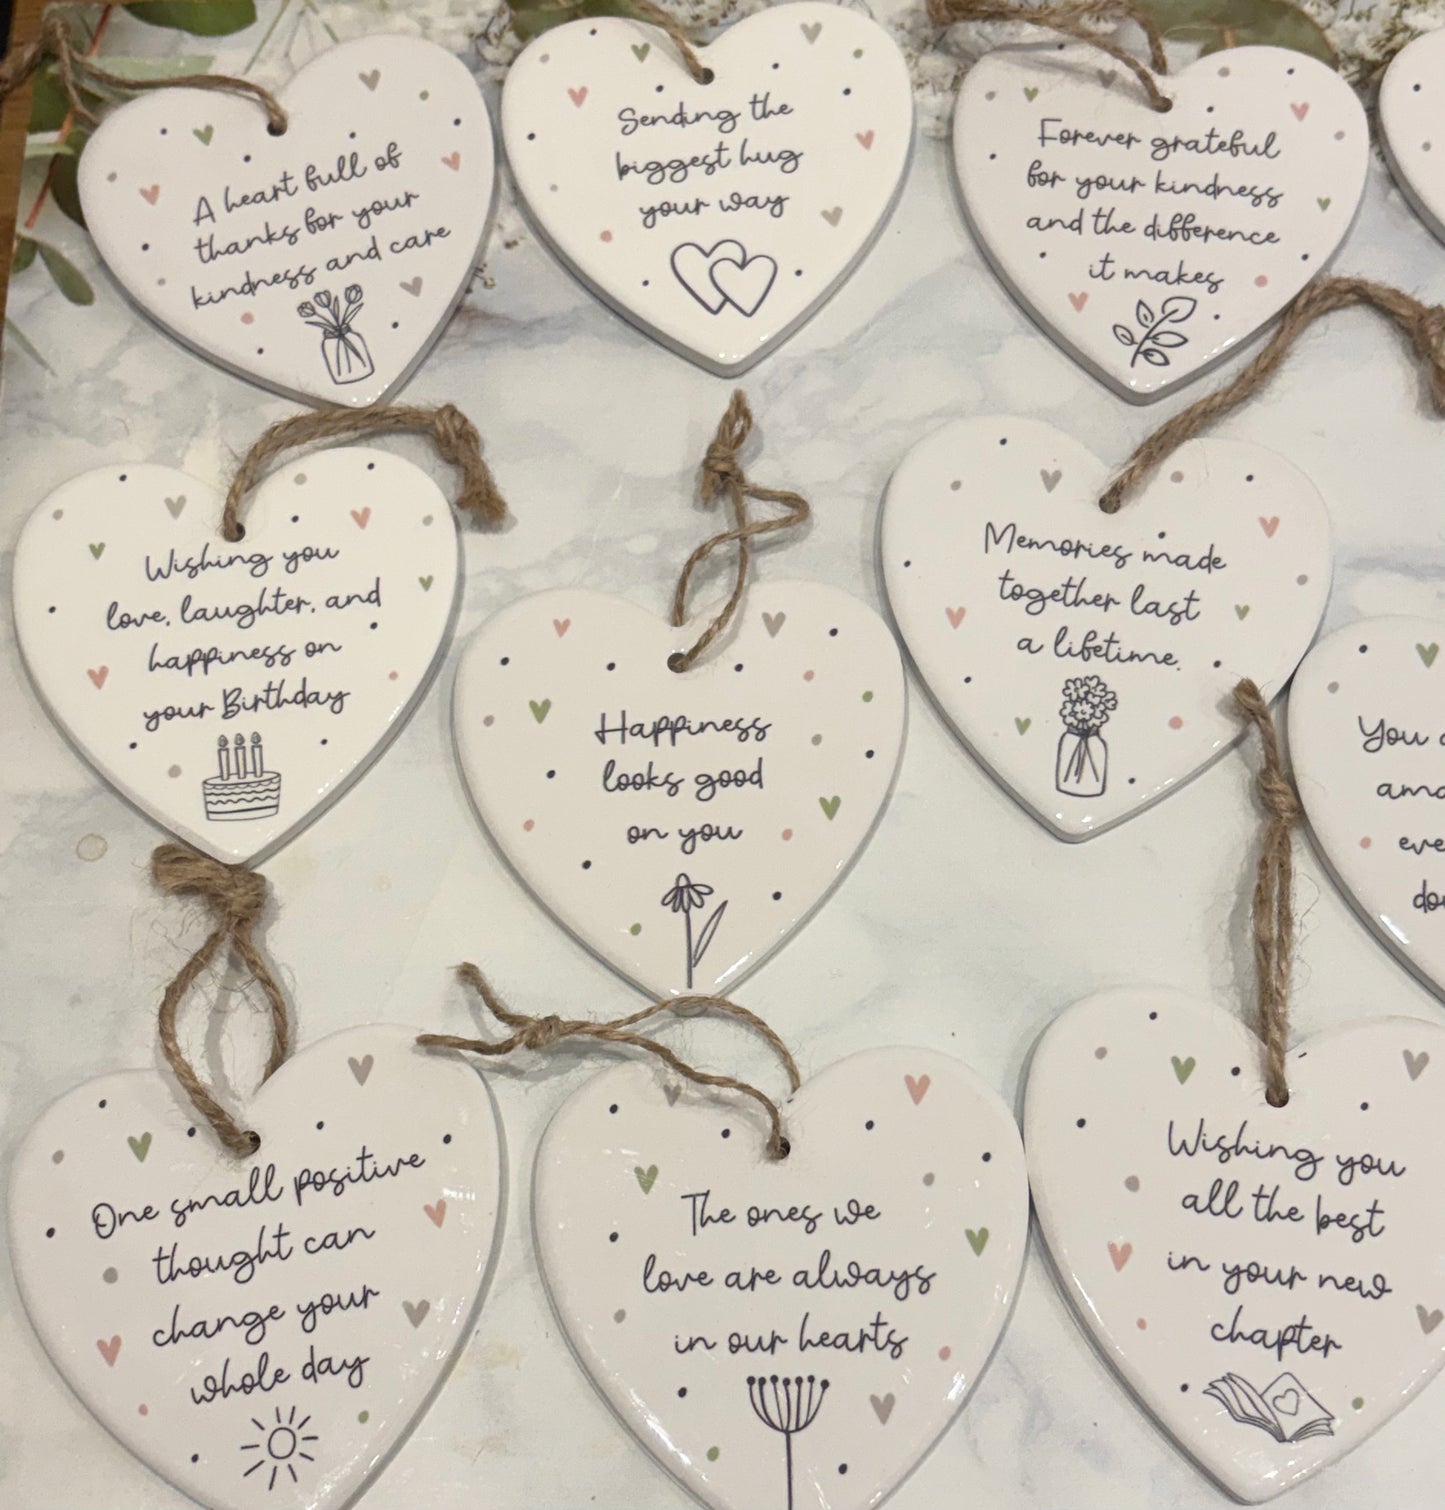 A heart full of
thanks for your
kindness and care
Sending the
biggest hug
your way
Forever grateful
for your kindness
and the difference
it makes
Wishing you
love, laughter, and
happiness on
your Birthday
Happiness
looks good
on you
Memories made
together last
a lifetime.
You
One small positive
thought can
change your
whole day
The ones we
love are always
in our hearts
Wishing you
all the best
in your new
chapter